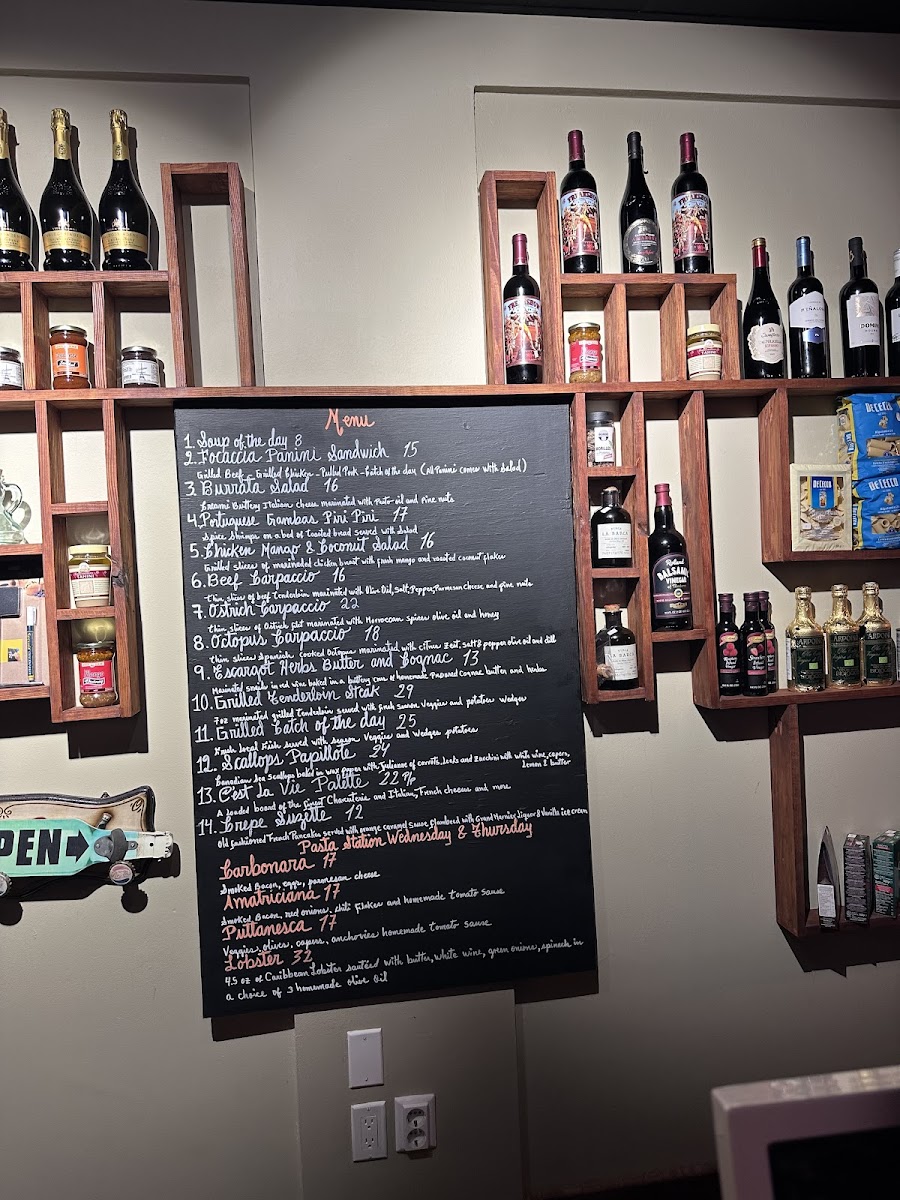 Menu
1. Soup of the day 8
2. Focaccia Panini Sandwich 15
Grilled Beef - Grilled Chicken - Pulled Pork - Catch of the day (All Panini comes with Salad)
3. Burrata Salad 16
Creami Buttery Italian cheese marinated with Pesto oil and Pine nuts
4. Portuguese Gambas Piri Piri 17
Spice Shrimps on a bed of Toasted bread served with Salad
5. Chicken Mango & Coconut Salad 16
Grilled slices of marinated chicken breast with fresh mango and roasted coconut flakes
6. Beef Carpaccio 16
Thin slices of beef Tenderloin marinated with Olive Oil, Salt, Pepper, Parmesan cheese, and pine nuts
7. Ostrich Carpaccio 22
Thin slices of Ostrich filet marinated with Moroccan spices olive oil and honey
8. Octopus Carpaccio 18
Thin slices Spanish cooked Octopus marinated with citrus zest, salt & pepper olive oil and dill
9. Escargot Herbs Butter and Cognac 13
Marinated snails in red wine baked in a buttery home made Prepared Cognac butter and herbs
10. Grilled Tenderloin Steak 29
7oz marinated grilled Tenderloin served with fresh season veggies and potatoes wedges
11. Grilled Catch of the day 25
Fresh local Fish served with season veggies and wedges potatoes
12. Scallops Papillote 24
Canadian Sea Scallops baked in wax paper with Julienne of carrots, leeks and Zucchini with white wine, capers,
Lemon & butter
13. C'est La Vie Palette 22 P/P
A loaded board of the finest Charcuterie and Italian, French cheeses and more
14. Crepe Suzette 12
Old fashioned French Pancakes served with orange caramel sauce flambeed with Grand Marnier Liquor & Vanilla ice cream
Pasta Station Wednesday & Thursday
Carbonara 17
Smoked Bacon, eggs, parmesan cheese
Amatriciana 17
Smoked Bacon, red onions, chili flakes and homemade tomato sauce
Puttanesca 17
Veggies, olives, capers, anchovies homemade tomato sauce
Lobster 32
4.5 oz of Caribbean Lobster sauteed with butter, white wine, green onions, spinach in
a choice of 3 homemade olive oil
PEN
DE CECCO
DE CECCO
BALSAMIC
VINEGAR
LA BARCA
LA BARCA